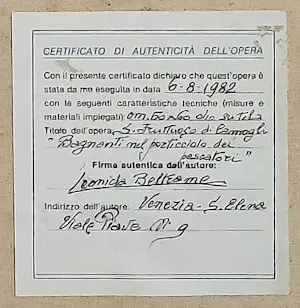 CERTIFICATO DI AUTENTICITÀ DELL'OPERA
Con il presente certificato dichiaro che quest'opera è
stata da me eseguita in data 6-8-1982
con le seguenti caratteristiche tecniche (misure e
materiali impiegati): cm. 60 olio su tela
Titolo dell'opera: S. Fruttuoso di Camogli
"Bagnanti nel porticciolo dei
pescatori"
Firma autentica dell'autore:
Leonida Beltrame
Indirizzo dell'autore: Venezia - S. Elena
Viale Piave N° 9